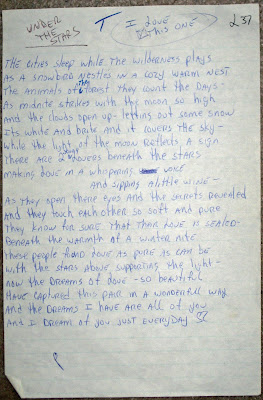 UNDER THE STARS
T
I LOVE THIS ONE
L 37
THE CITIES SLEEP WHILE THE WILDERNESS PLAYS
AS A SNOWBIRD NESTLES IN A COZY WARM NEST
THE ANIMALS OF THE FOREST THEY COUNT THE DAYS-
AS MIDNITE STRIKES WITH THE MOON SO HIGH
AND THE CLOUDS OPEN UP- LETTING OUT SOME SNOW
ITS WHITE AND BRITE AND IT COVERS THE SKY-
WHILE THE LIGHT OF THE MOON REFLECTS A SIGN
THERE ARE 2 LOVERS BENEATH THE STARS
MAKING LOVE IN A WHISPERING VOICE
AND SIPPING A LITTLE WINE-
AS THEY OPEN THERE EYES AND THE SECRETS REVEALED
AND THEY TOUCH EACH OTHER SO SOFT AND PURE
THEY KNOW FOR SURE THAT THER LOVE IS SEALED-
BENEATH THE WARMTH OF A WINTER NITE
THESE PEOPLE FOUND LOVE AS PURE AS CAN BE
WITH THE STARS ABOVE SUPPORTING THE LIGHT-
NOW THE DREAMS OF LOVE -SO BEAUTIFUL
HAVE CAPTURED THIS PAIR IN A WONDERFUL WAY
AND THE DREAMS I HAVE ARE ALL OF YOU
AND I DREAM OF YOU JUST EVERYDAY